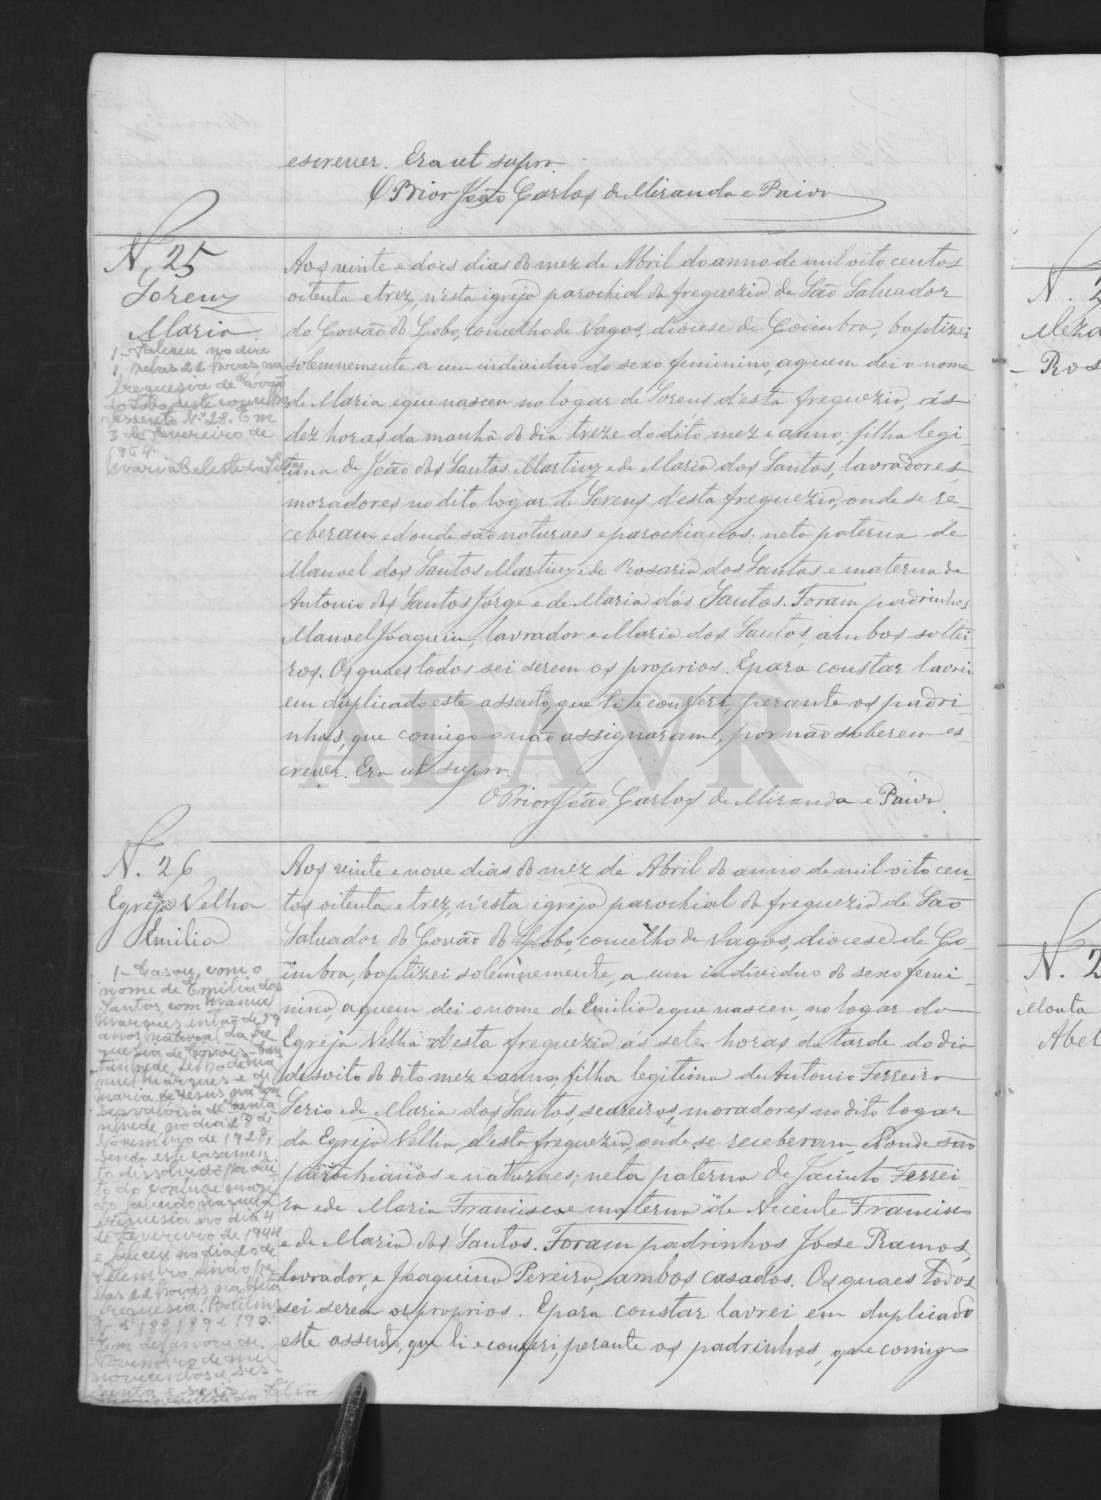 escrever. Era ut supra.
O Prior João Carlos de Miranda e Paiva
N. 25
Sorens
Maria
1 - Faleceu no dia
1, pelas 22 horas, na
freguesia de Covão
do Lobo, deste concelho
assento Nº 28. Em
3 de Fevereiro de
1964.
Maria Celeste da Silva
Aos vinte e dois dias do mez de Abril do anno de mil oito centos
oitenta e trez, n'esta igreja parochial da freguezia de São Salvador
do Covão do Lobo, concelho de Vagos, diocese de Coimbra, baptizei
solemnemente a um individuo do sexo feminino, a quem dei o nome
de Maria e que nasceu no logar de Sorens d'esta freguezia, ás
dez horas da manhã do dia treze do dito mez e anno; filha legi-
tima de João dos Santos Martins e de Maria dos Santos, lavradores,
moradores no dito logar de Sorens d'esta freguezia, onde se re-
ceberam e d'onde são naturaes e parochianos: neta paterna de
Manoel dos Santos Martins e de Rosaria dos Santos e materna de
Antonio dos Santos Jorge e de Maria dos Santos. Foram padrinhos
Manoel Joaquim, lavrador e Maria dos Santos, ambos soltei-
ros. Os quaes todos sei serem os proprios. E para constar lavrei
em duplicado este assento, que li e conferi, perante os padri-
nhos, que comigo não assignaram, por não saberem es-
crever. Era ut supra.
O Prior João Carlos de Miranda e Paiva.
ADAVR
N. 26
Egreja Velha
Emilia
1 - Casou, com o
nome de Emilia dos
Santos, com Manuel
Marques, então de 29
anos, natural da fre-
guesia de Covões - Can-
tanhede, filho de Ma-
nuel Marques e de
Maria de Jesus, na con-
servatória de Canta-
nhede, no dia 28 de
Novembro de 1928,
sendo este casamen-
to dissolvido por óbi-
to do conjuge mari-
do falecido naquela
freguesia no dia 4
de Fevereiro de 1944
e faleceu no dia 20 de
Setembro findo pe-
las 22 horas, na dita
freguesia. Boletins
Nºs 188, 189 e 190.
Em dezanove de
Novembro de mil
novecentos e ses-
senta e seis.
Maria Celeste da Silva
Aos vinte e nove dias do mez de Abril do anno de mil oito cen-
tos oitenta e trez, n'esta igreja parochial da freguezia de São
Salvador do Covão do Lobo, concelho de Vagos, diocese de Co-
imbra, baptizei solemnemente, a um individuo do sexo femi-
nino, a quem dei o nome de Emilia e que nasceu, no logar da
Egreja Velha d'esta freguezia ás sete horas da tarde do dia
desoito do dito mez e anno, filha legitima de Antonio Ferreira
Serio e de Maria dos Santos, seareiros, moradores no dito logar
da Egreja Velha, d'esta freguezia, onde se receberam, d'onde são
parochianos e naturaes; neta paterna de Jacinto Ferrei-
ra e de Maria Francisca e materna de Vicente Francisco
e de Maria dos Santos. Foram padrinhos Jose Ramos,
lavrador, e Joaquina Pereira, ambos casados. Os quaes todos
sei serem os proprios. E para constar lavrei em duplicado
este assento, que li e conferi, perante os padrinhos, que comigo
N. 2
Ros
N. 2
Monta
Abel